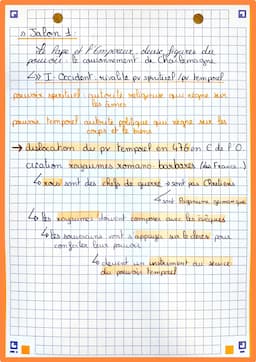 » Jalon 1 :
Le Pape et l'Empereur, deux figures du
pouvoir : le couronnement de Charlemagne
↳» I. Occident : rivalité pv spirituel / pv temporel
pouvoir spirituel : autorité religieuse qui règne sur
les âmes
pouvoir temporel : autorité politique qui règne sur les
corps et le biens
→ dislocation du pv temporel en 476 en E de l'O.
création royaumes romano-barbares (les Francs..)
↳ rois sont des chefs de guerre → sont pas Chrétiens
↳ sont Paganisme germanique
↳ les royaumes doivent composer avec les évêques
↳ les souverains vont s'appuyer sur le clergé pour
conforter leur pouvoir
↳ devient un instrument au service
du pouvoir temporel